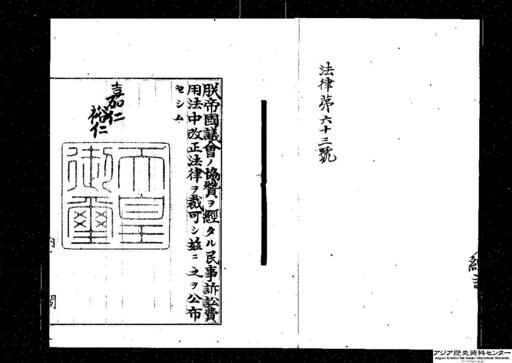 法律第六十三號
朕帝國議會ノ協贊ヲ經タル民事訴訟費
用法中改正法律ヲ裁可シ茲ニ之ヲ公布
セシム
嘉仁
裕仁
天皇
御璽
内閣
アジア歴史資料センター
Japan Center for Asian Historical Records